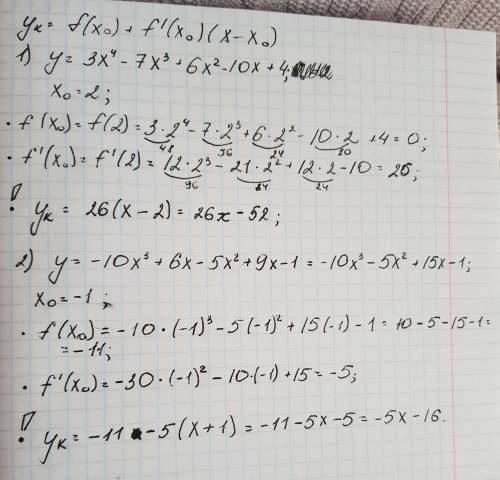 yк = f(x₀) + f'(x₀)(x-x₀)
1) y = 3x⁴ - 7x³ + 6x² - 10x + 4;
x₀ = 2;
• f(x₀) = f(2) = 3·2⁴ - 7·2³ + 6·2² - 10·2 + 4 = 0;
48 96 24 20
• f'(x₀) = f'(2) = 12·2³ - 21·2² + 12·2 - 10 = 26;
96 84 24
! yк = 26(x-2) = 26x - 52;
2) y = -10x³ + 6x - 5x² + 9x - 1 = -10x³ - 5x² + 15x - 1;
x₀ = -1;
• f(x₀) = -10·(-1)³ - 5(-1)² + 15(-1) - 1 = 10 - 5 - 15 - 1 =
= -11;
• f'(x₀) = -30·(-1)² - 10·(-1) + 15 = -5;
! yк = -11 - 5(x+1) = -11 - 5x - 5 = -5x - 16.